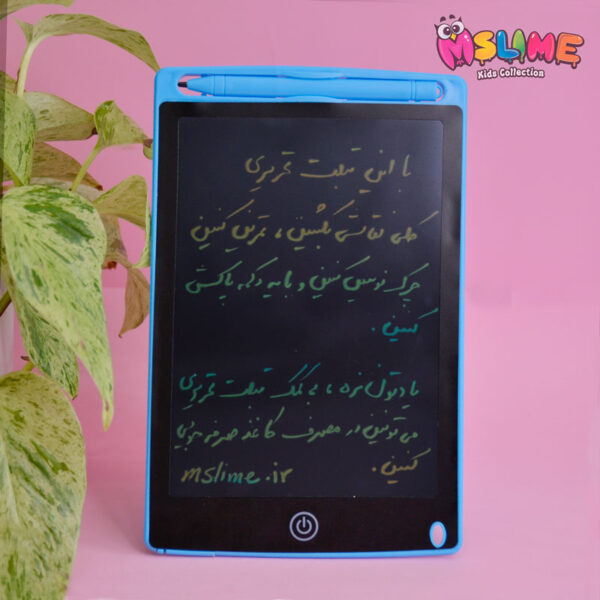 MSLIME
Kids Collection
با این تبلت تحریری
کلی نقاشی بکشین، تمرین کنین
چرک نویس کنین و با یه دکمه پاکش
کنین.
یادتون نره، به کمک تبلت تحریری
می‌تونین در مصرف کاغذ صرفه جویی
کنین.
mslime.ir